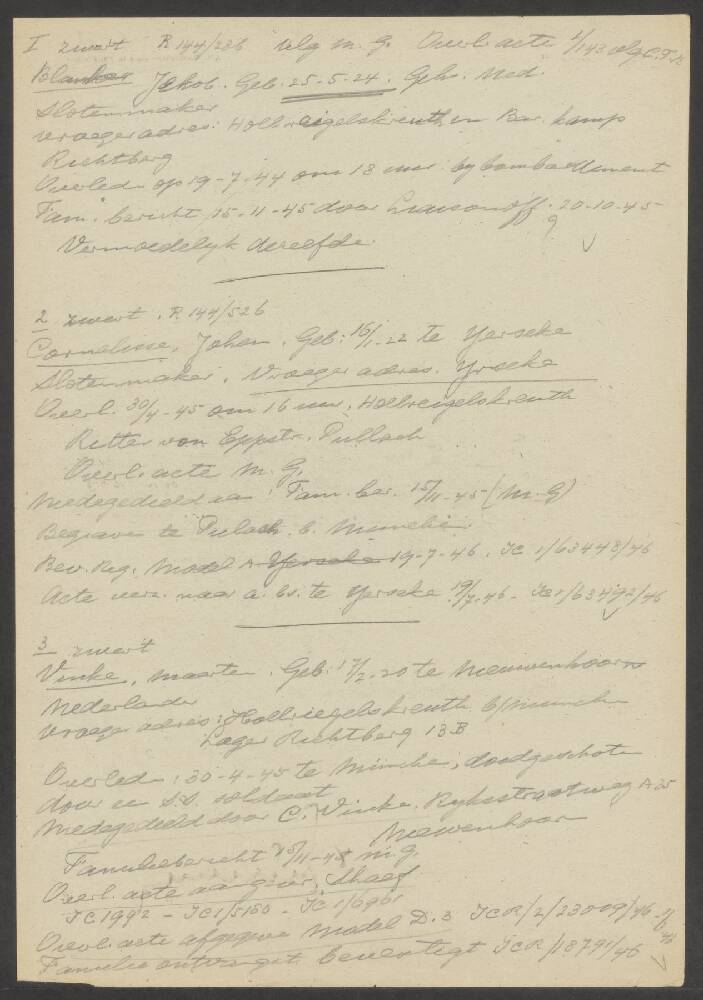 I zwart R 144/286 volg m. G. Overl. acte 2/143 volg C.T.B
Blanker Jakob. Geb: 25-5-24. Geh. Ned.
Slotenmaker
vroeger adres: Hollreigelskreuth en Bar. kamp
Richtberg
Overled. op 19-7-44 om 18 uur by bombardement
Fam. bericht 15-11-45 door Liaisonoff. 20-10-45
Vermoedelyk dezelfde ?
2 zwart. R 144/526
Cornelisse, Johan. Geb: 16/1-22 te Yerseke
Slotenmaker. Vroeger adres. Yrseke
Overl. 30/4-45 om 16 uur, Hollreigelskreuth
Ritter von Eppstr. Pullach
Overl. acte M. G.
Medegedeeld aan: Fam. ber. 15/11-45 (M.G)
Begraven te Pulach. b. Munchen
Bev. Reg. Model A Yerseke 19-7-46. IC 1/63448/46
Acte verz. naar a. bs. te Yerseke 19/7-46 - IC 1/63492/46
3 zwart
Vinke, Maarten. Geb: 17/2.20 te Nieuwenhoorn
Nederlander
vroeger adres: Hollriegelskreuth b/Munchen
Lager Richtberg 13 B
Overleden: 30-4-45 te München, doodgeschoten
door een S.S. soldaat
Medegedeeld door C. Vinke. Ryksstraatweg A 25
Nieuwenhoorn
Familiebericht 15/11-45 M.G.
Overl. acte aangever, Shaef
IC 1992 - IC 1/5150 - IC 1/6961
Overl. acte afgegeven Model D. 3 ICR/2/23009/46
Familie ontvangst bevestigt ICR/18791/46